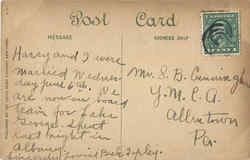 Post Card
MESSAGE
ADDRESS ONLY
Harry and I were
married Wednes-
day June 6th. We
are now on board
train for Lake
George. Spent
last night in
Albany.
Mr. S. B. Cunningham
Y.M.C.A.
Allentown
Pa.